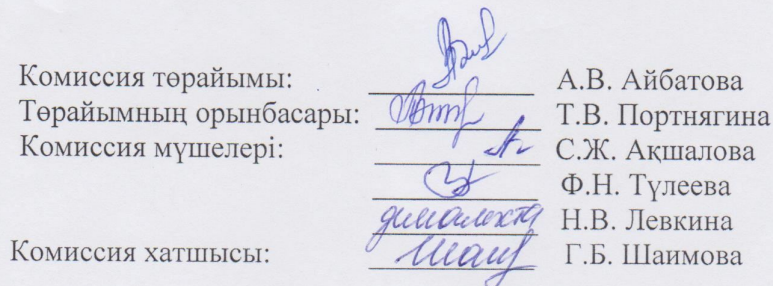 Комиссия төрайымы: А.В. Айбатова
Төрайымның орынбасары: Т.В. Портнягина
Комиссия мүшелері: С.Ж. Ақшалова
Ф.Н. Түлеева
Н.В. Левкина
Комиссия хатшысы: Г.Б. Шаимова